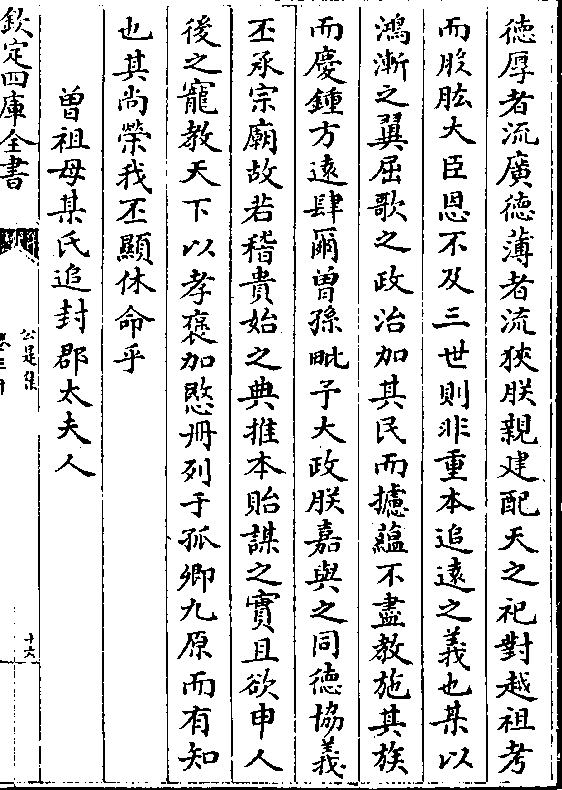 德厚者流廣德薄者流狹朕親建配天之祀對越祖考
而股肱大臣恩不及三世則非重本追遠之義也某以
鴻漸之翼屈歌之政治加其民而攄蘊不盡教施其族
而慶鍾方遠肆爾曾孫毗予大政朕嘉與之同德協義
丕承宗廟故若稽貴始之典推本貽謀之實且欲申人
後之寵教天下以孝褒加愍冊列于孤卿九原而有知
也其尚榮我丕顯休命乎
曾祖母某氏追封郡太夫人
欽定四庫全書
公是集
十六